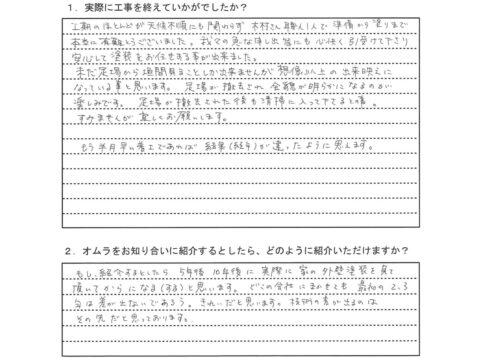 1．実際に工事を終えていかがでしたか？
工期のほとんどが天候不順にも関わらず 木村さん 1人で 準備から塗りまで
本当に有難うございました。我々の急な申し出にも心快く引受けて下さり
安心して塗装をお任せする事が出来ました。
まだ足場から垣間見ることしか出来ませんが想像以上の出来映えに
なっている事と思います。足場が撤去され全貌が明らかになるのが
楽しみです。足場が撤去された後も清掃に入って下さると
すみませんが宜しくお願いします。
もう半月早い着工であれば 結果(紙面)が違ったように思えます。
2．オムラをお知り合いに紹介するとしたら、どのように紹介いただけますか？
もし、紹介するとしたら 5年後 10年後に 実際に 家の外壁塗装を見て
頂いてからになる(する)と思います。どこの会社にまかせても 最初の2、3
年は差が出ないであろう。きれいだと思います。技術の差が出るのは
その先だと思っております。